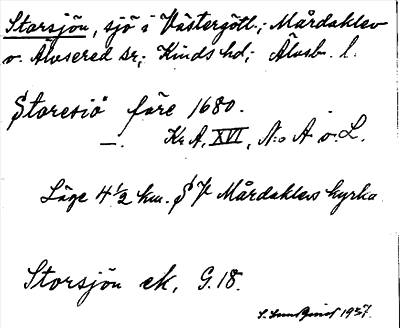 Storsjön, sjö i Västergötl.; Mårdaklev
o. Älvsered sr; Kinds hd; Älvsb. l.
Storesiö före 1680.
—. KrA, XVI, N:o A o. L.
Läge 4 1/2 km. S V Mårdaklevs kyrka
Storsjön ek, G.18.
S. 1937.